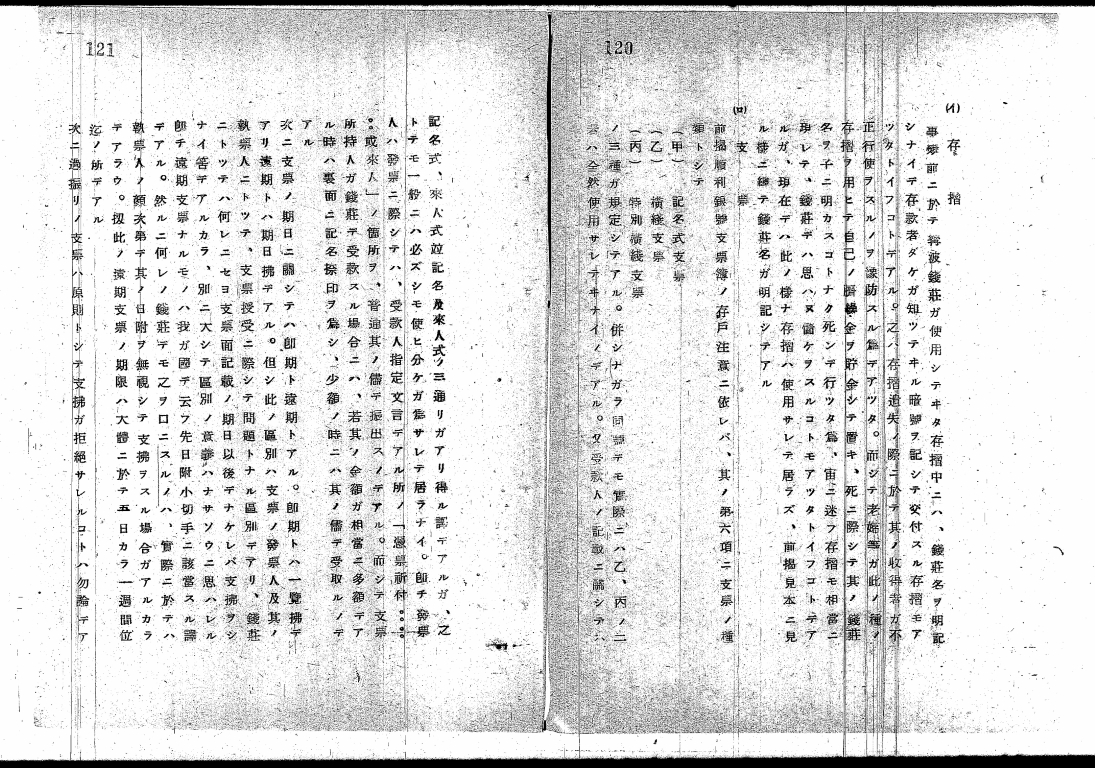 120
(イ) 存 摺
事變前ニ於テ寧波錢莊ガ使用シテヰタ存摺中ニハ、錢莊名ヲ明記
シナイデ存款者ダケガ知ツテヰル暗號ヲ記シテ交付スル存摺モア
ツタトイフコトデアル。之ハ存摺遺失ノ際ニ於テ其ノ收得者ガ不
正行使ヲスルノヲ豫防スル爲デアツタ。而シテ老姪等ガ此ノ種ノ
存摺ヲ用ヒテ自己ノ臍繰金ヲ貯金シテ置キ、死ニ際シテ其ノ錢莊
名ヲ子ニ明カスコトナク死ンデ行ツタ爲、宙ニ迷フ存摺モ相當ニ
現レテ、錢莊デハ思ハヌ儲ケヲスルコトモアツタトイフコトデア
ルガ、現在デハ此ノ樣ナ存摺ハ使用サレテ居ラズ、前揭見本ニ見
ル樣ニ總テ錢莊名ガ明記シテアル
(ロ) 支 票
前揭順利銀號支票簿ノ存戶注意ニ依レバ、其ノ第六項ニ支票ノ種
類トシテ
(甲) 記名式支票
(乙) 橫綫支票
(丙) 特別橫綫支票
ノ三種ガ規定シテアル。併シナガラ同號デモ實際ニハ乙、丙ノ二
ハ全然使用サレテヰナイノデアル。又受款人ノ記載ニ關シテハ
121
記名式、來人式竝記名及來人式ノ三通リガアリ得ル譯デアルガ、之
トテモ一般ニハ必ズシモ使ヒ分ケガ爲サレテ居ラナイ。卽チ發票
人ハ發票ニ際シテハ、受款人指定文言デアル所ノ「憑票祈付。。。
。。或來人」ノ箇所ヲ、普通其ノ儘デ振出スノデアル。而シテ支票
所持人ガ錢莊デ受款スル場合ニハ、若其ノ金額ガ相當ニ多額デア
ル時ハ裏面ニ記名捺印ヲ爲シ、少額ノ時ニハ其ノ儘デ受取ルノデ
アル
次ニ支票ノ期日ニ關シテハ卽期ト遠期トアル。卽期トハ一覽拂デ
アリ遠期トハ期日拂デアル。但シ此ノ區別ハ支票ノ發票人及其ノ
執票人ニトツテ、支票授受ニ際シテ問題トナル區別デアリ、錢莊
ニトツテハ何レニセヨ支票面記載ノ期日以後デナケレバ支拂ヲシ
ナイ筈デアルカラ、別ニ大シテ區別ノ意義ハナサソウニ思ハレル
卽チ遠期支票ナルモノハ我ガ國デ云フ先日附小切手ニ該當スル譯
デアル。然ルニ何レノ錢莊デモ乙ヲ口ニスルノハ、實際ニ於テハ
執票人ノ顏次第デ其ノ日附ヲ無視シテ支拂ヲスル場合ガアルカラ
デアラウ。扨此ノ遠期支票ノ期限ハ大體ニ於テ五日カラ一週間位
迄ノ所デアル
次ニ過振リノ支票ハ原則トシテ支拂ガ拒絕サレルコトハ勿論デア